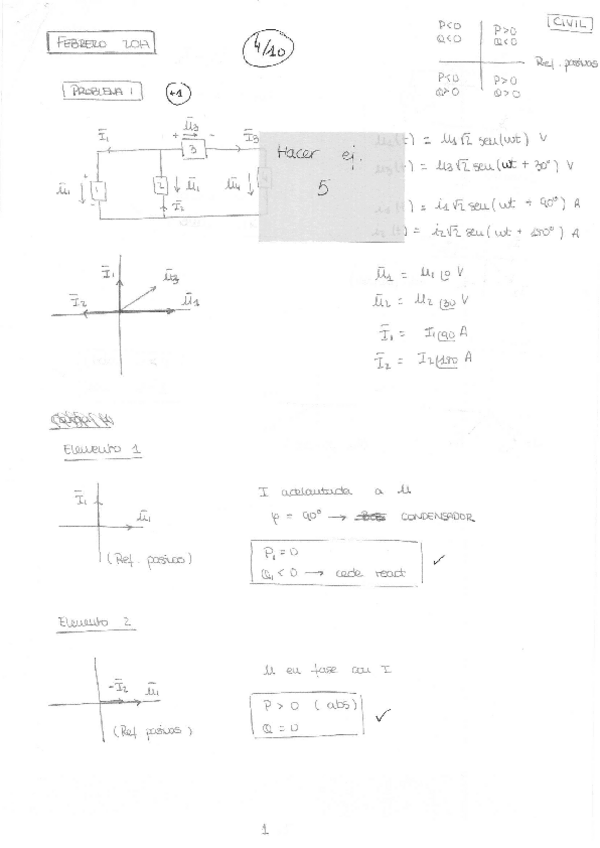 FEBRERO 2017
4/10
CIVIL
P<0
Q<0
P>0
Q<0
Ref. pasivos
P<0
Q>0
P>0
Q>0
PROBLEMA 1
+1
Ī₁
ū₃
+ 3 -
Ī₃
ū₁
1
2
ū₁
ū₄
Ī₂
Hacer ej.
5
(t) = u₁√2 sen(ωt) V
(t) = u₃√2 sen(ωt + 30°) V
(t) = i₁√2 sen(ωt + 90°) A
(t) = i₂√2 sen(ωt + 180°) A
Ī₁
ū₃
Ī₂
ū₁
ū₁ = u₁|0 V
ū₂ = u₂|30 V
Ī₁ = I₁|90 A
Ī₂ = I₂|180 A
Elemento 1
Ī₁
ū₁
(Ref. pasivos)
I adelantada a u
φ = 90° → CONDENSADOR
P₁ = 0
Q₁ < 0 → cede react
Elemento 2
-Ī₂ ū₁
(Ref pasivos)
u en fase con I
P > 0 (abs)
Q = 0
1